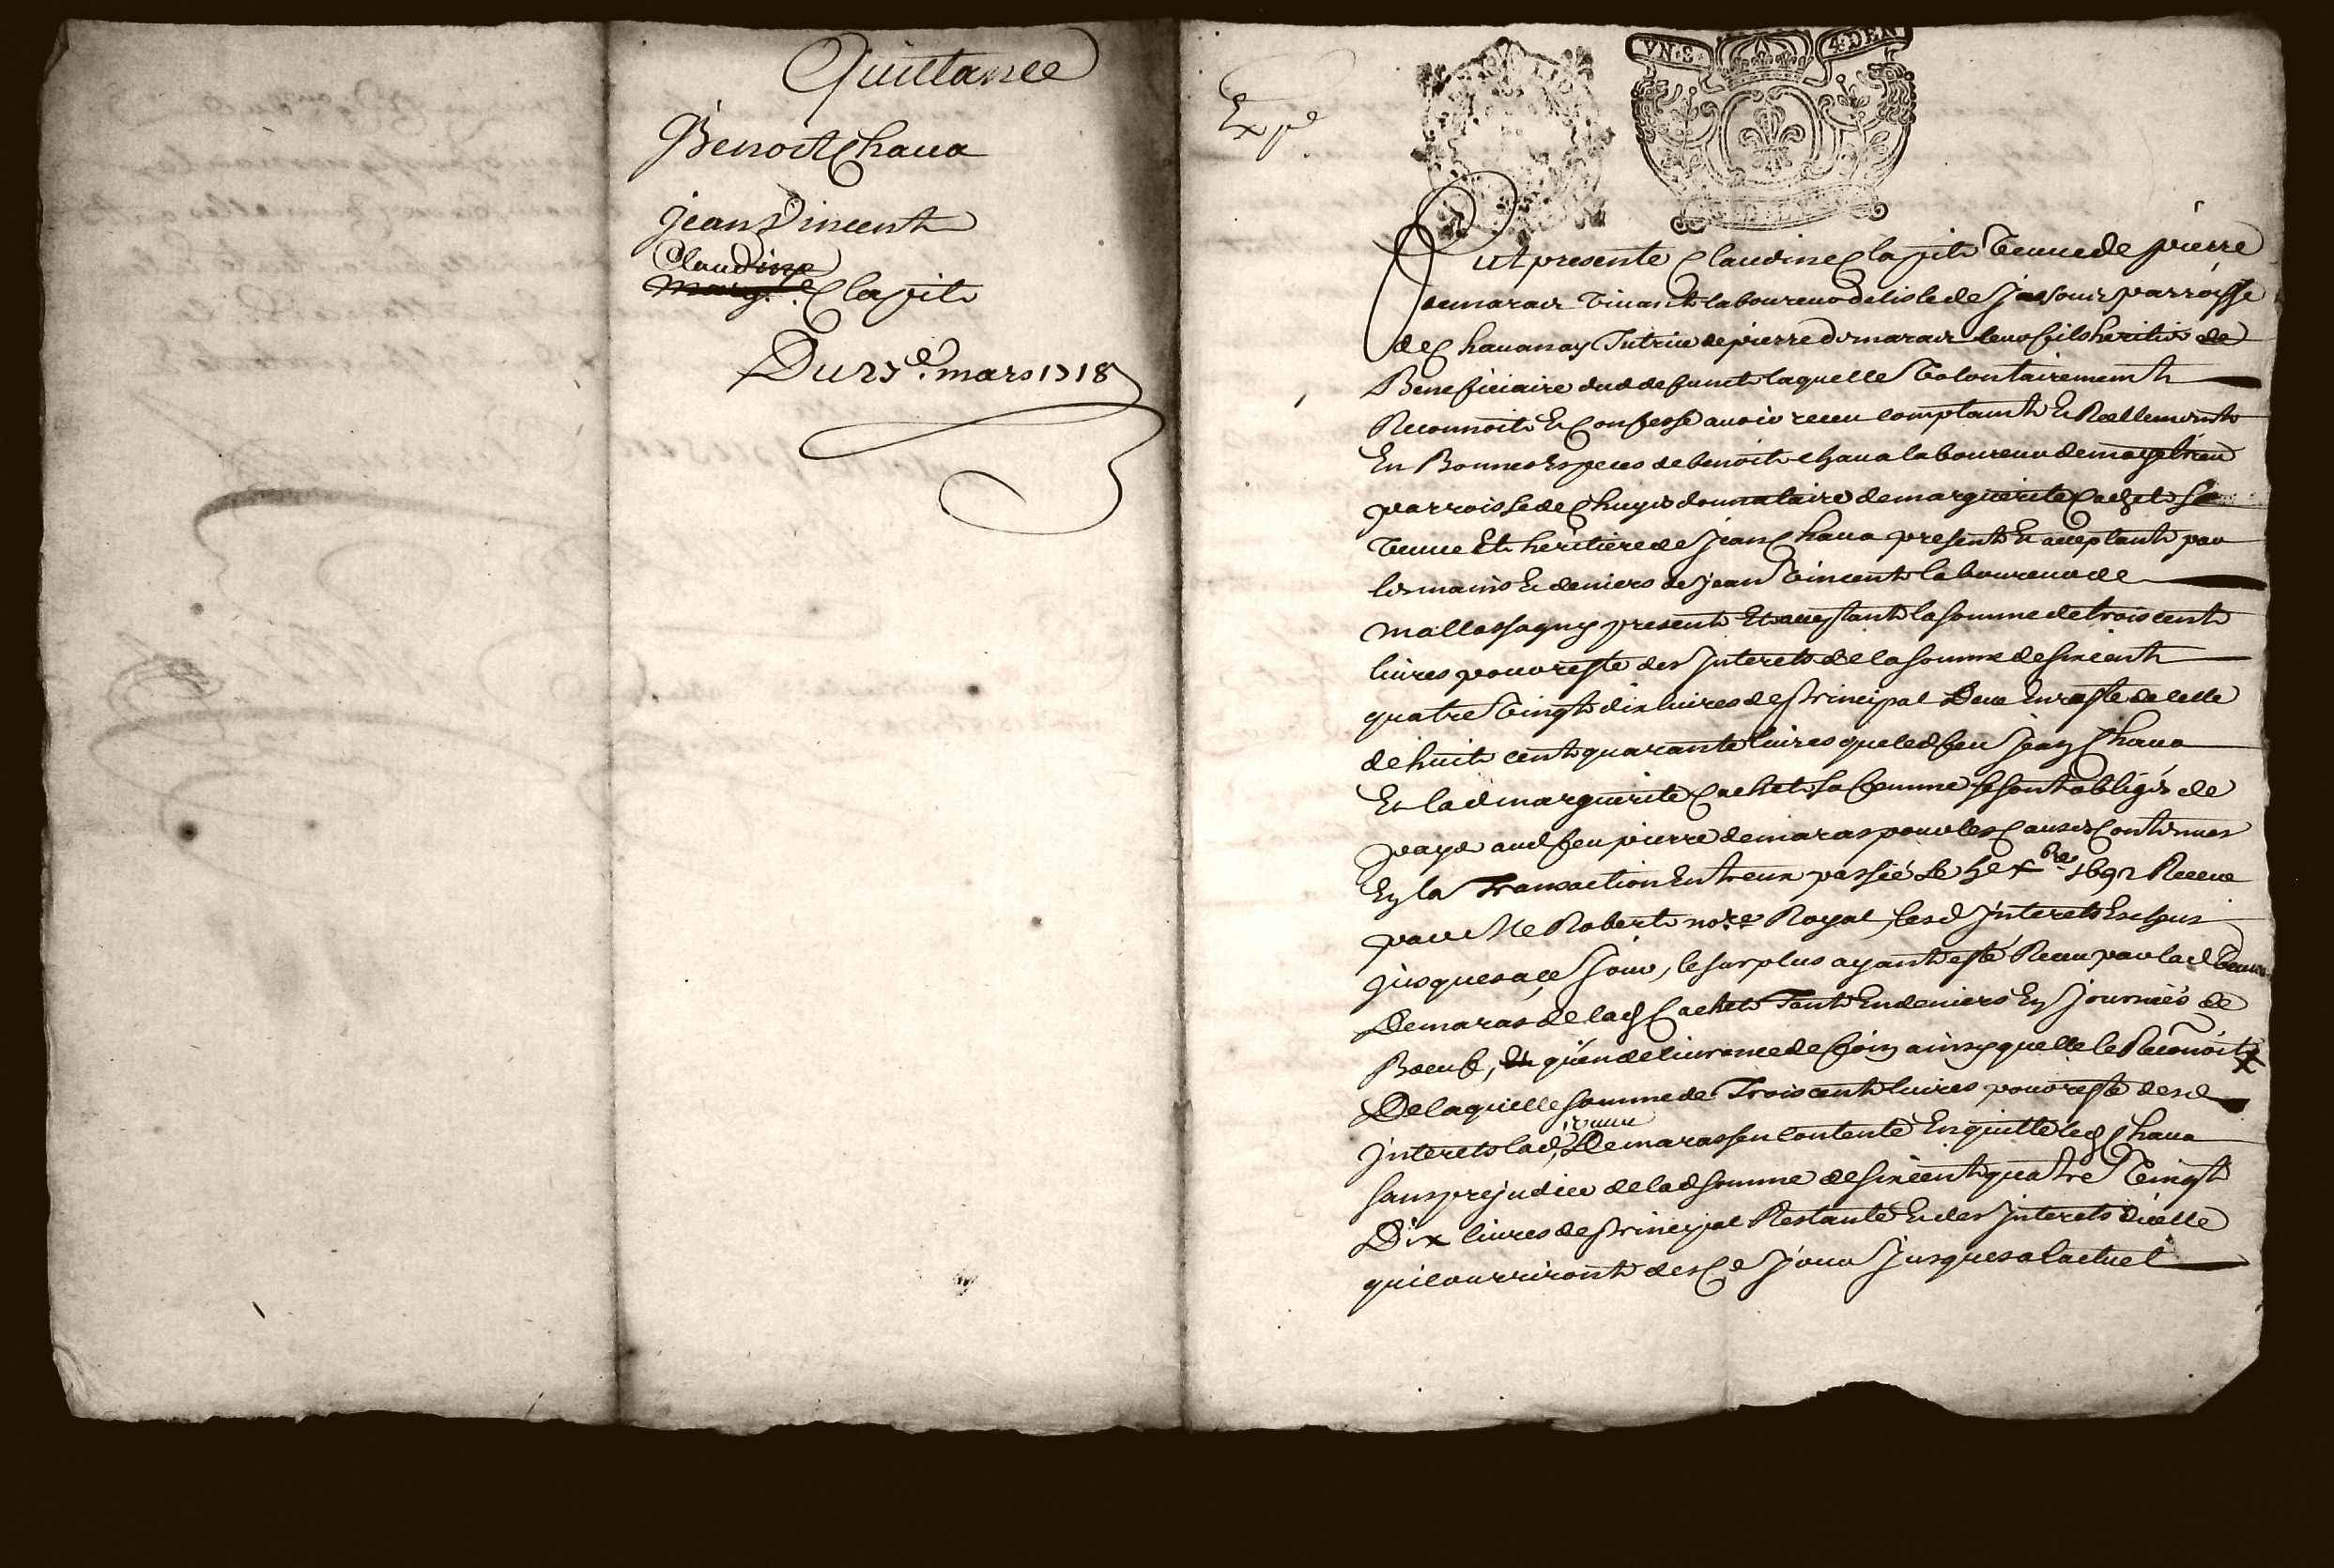 Quittance
Benoit Chaua
jean Vincent
Claudine
Clapit
Du 27e. mars 1718
Expe
VN·S· 4·DEN
Fut presente Claudine Clapit veuue de pierre
demaras viuant laboureur de lisle de parroisse
de Chauanay Tutrice de pierre demaras leur fils heritier de
Beneficiaire dud defunct laquelle volontairement
Reconnoit et Confesse auoir receu comptant et Reellement
En Bonnes Especes de benoit chaua laboureur de
parroisse de Chuyer donnataire de marguerite Cachet sa
veuue et heritiere de jean Chaua present et acceptant par
les mains et deniers de jean vincent laboureur de
mallassagny present et acceptant la somme de trois cent
liures pour reste des jnterets de la somme de six cent
quatre vingt dix liures de principal Deue En reste de celle
de huit cent quarante liures que led feu jean Chaua
Et lad marguerite Cachet sa femme se sont obliges de
payer aud feu pierre demaras pour les Causes Contenues
En la Transaction Entreux passée le xbre 1692 Receue
par Me Robert nore Royal, lesd jnterets Escheus
jusques a ce jour, le surplus ayant esté Receu par lad veuue
Demaras de lad Cachet Tant En deniers En journées de
Boeuf, qu'en deliurance de foin ainsy quelle le Reconoit
De laquelle somme de Trois cent liures pour reste desd
veuue
jnterets lad, Demaras sen contente En quitte led Chaua
sans prejudice de lad somme de six cent quatre vingt
Dix liures de principal Restante et des jnterets dicelle
qui courriront des Ce jour jusques a lactuel